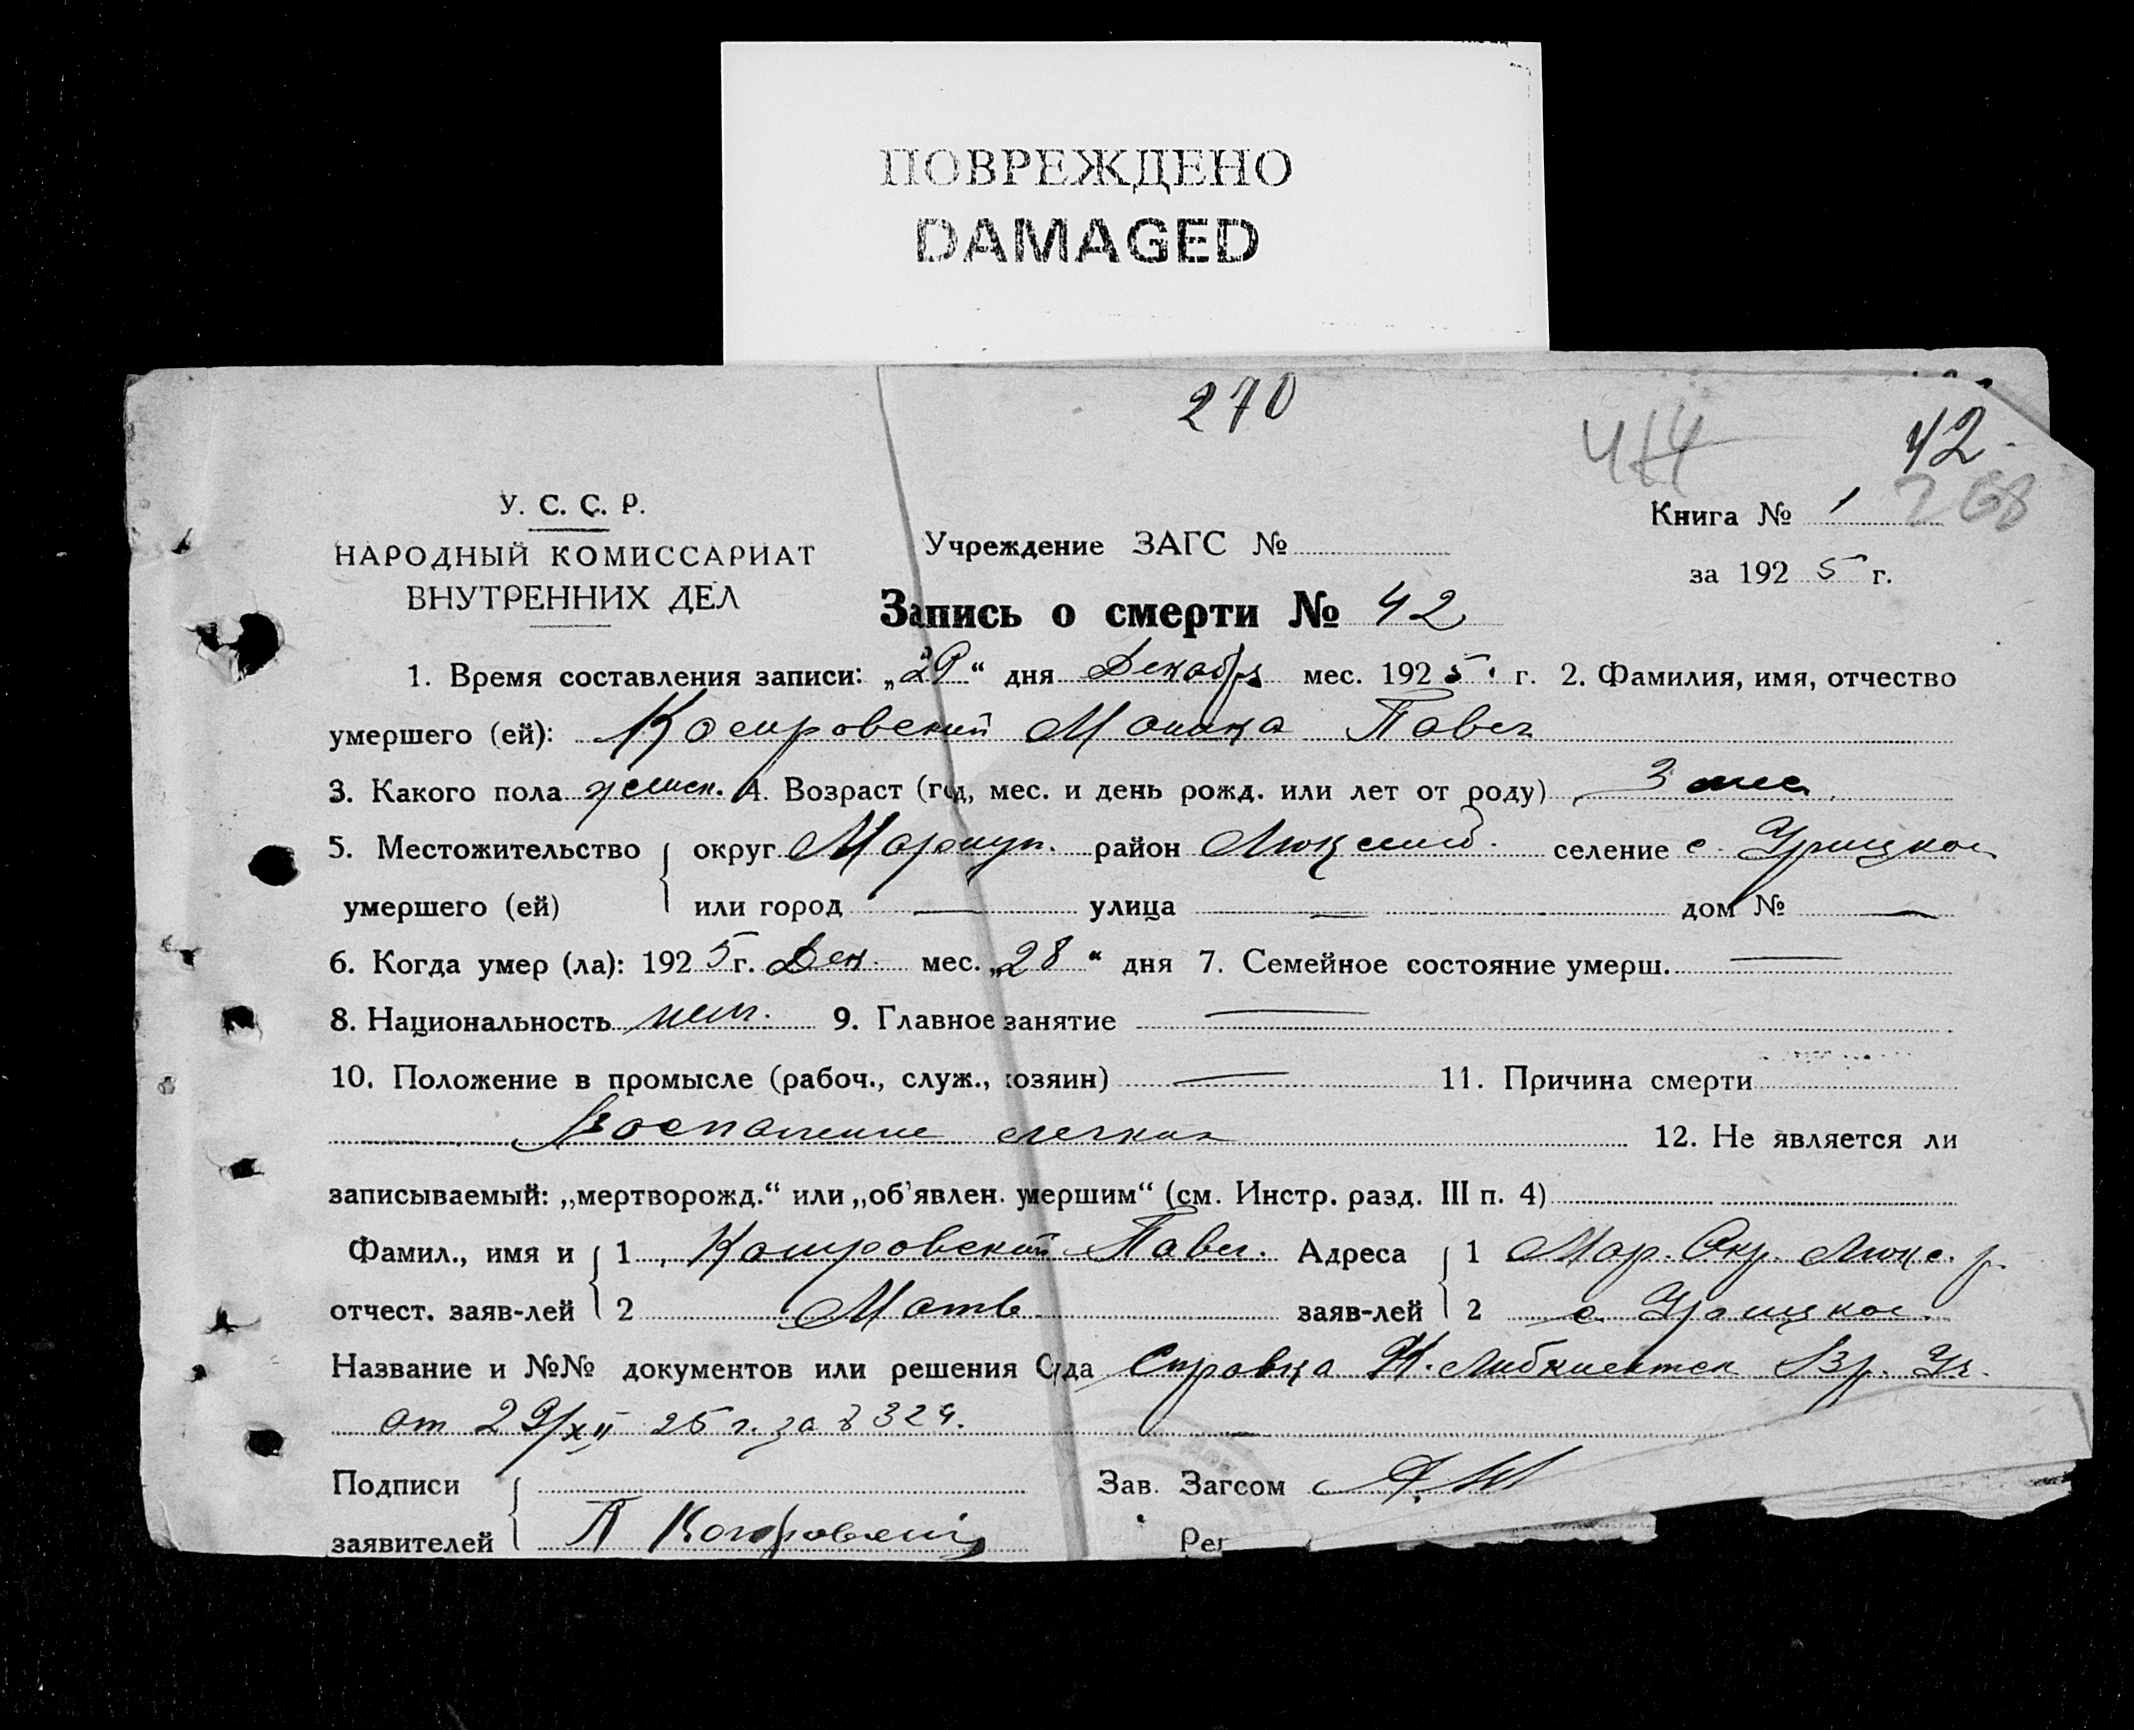 ПОВРЕЖДЕНО
DAMAGED
270
42
У. С. С. Р.
НАРОДНЫЙ КОМИССАРИАТ
ВНУТРЕННИХ ДЕЛ
Учреждение ЗАГС №
Книга № 1
268
за 1925 г.
Запись о смерти № 42
1. Время составления записи: „29“ дня Декабря мес. 1925 г. 2. Фамилия, имя, отчество
умершего (ей): Павл
3. Какого пола женск. 4. Возраст (год, мес. и день рожд. или лет от роду) 3 мес.
5. Местожительство округ Мариуп. район Люксемб. селение с. Урицкое
умершего (ей) или город — улица — дом № —
6. Когда умер (ла): 1925 г. Дек. мес. „28“ дня 7. Семейное состояние умерш. —
8. Национальность нем. 9. Главное занятие —
10. Положение в промысле (рабоч., служ., хозяин) — 11. Причина смерти
Воспаление легких
12. Не является ли
записываемый: „мертворожд.“ или „об'явлен. умершим“ (см. Инстр. разд. III п. 4)
Фамил., имя и 1 Павел. Адреса 1 Мар. Окр. Люкс. р.
отчест. заяв-лей 2 Матв заяв-лей 2 с. Урицкое.
Название и №№ документов или решения Суда Справка К. Либкнехтск Вр. Уч.
от 29/XII 25 г. за № 324.
Подписи
Зав. Загсом
заявителей П
Рег